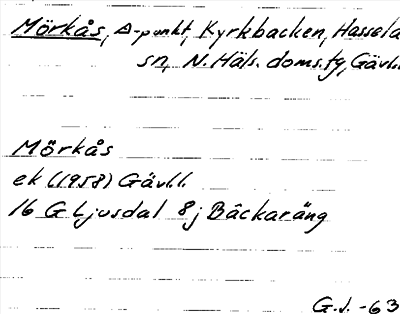 Mörkås, Δ-punkt, Kyrkbacken, Hassela
sn, N. Häls. doms.fg, Gävl.l.
Mörkås
ek (1958) Gävl.l.
16 G Ljusdal 8j Bäckaräng
G.J. -63